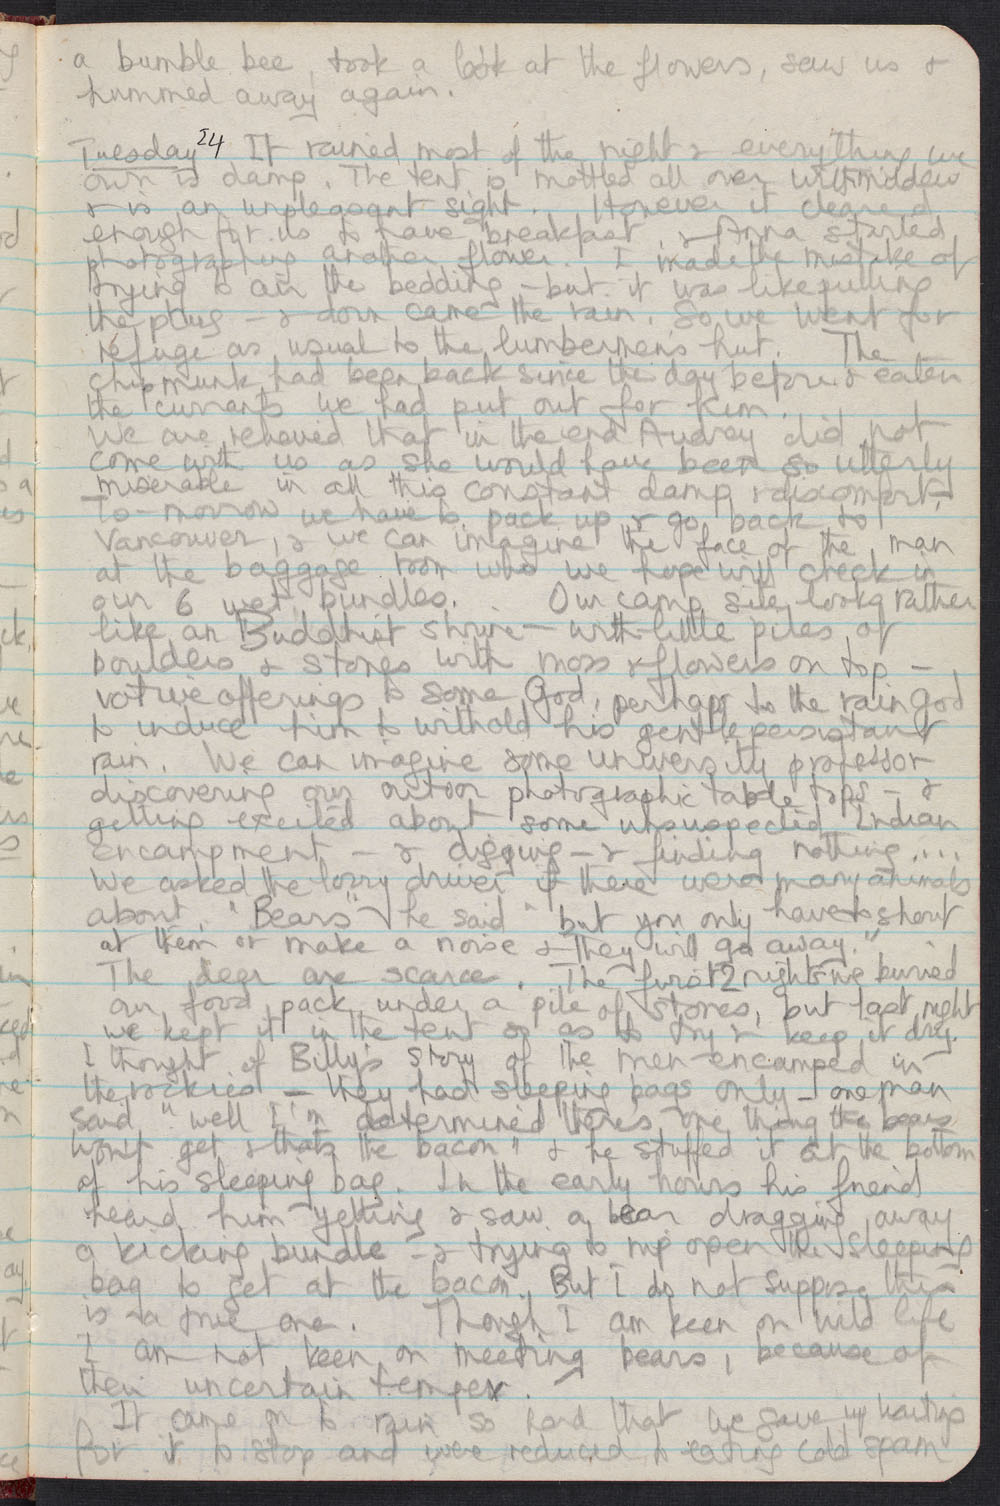 a bumble bee, took a look at the flowers, saw us &
hummed away again.
Tuesday 24 It rained most of the night & everything we
own is damp. The tent is mottled all over with mildew
& is an unpleasant sight. However it cleared
enough for us to have breakfast, & Anna started
photographing another flower. I made the mistake of
trying to air the bedding - but it was like pulling
the plug - & down came the rain. So we went for
refuge as usual to the lumbermens hut. The
chipmunk had been back since the day before & eaten
the currants we had put out for him.
We are relieved that in the end Audrey did not
come with us as she would have been so utterly
miserable in all this constant damp & discomfort.
To-morrow we have to pack up & go back to
Vancouver, & we can imagine the face of the man
at the baggage room who we hope will check in
our 6 wet bundles. Our camp site looks rather
like an Buddhist shrine - with little piles of
boulders & stones with moss & flowers on top -
votive offerings to some God, perhaps to the rain God
to induce him to withold his gentle persistant
rain. We can imagine some university professor
discovering our outdoor photographic table tops - &
getting excited about some unsuspected Indian
encampment - & digging - & finding nothing....
We asked the lorry driver if there were many animals
about. "Bears" he said "but you only have to shout
at them or make a noise & they will go away."
The deer are scarce. The first 2 nights we buried
our food pack under a pile of stones, but last night
we kept it in the tent so as to try & keep it dry.
I thought of Billy's story of the men encamped in
the rockies - they had sleeping bags only - one man
said "well I'm determined theres one thing the bears
wont get & thats the bacon" & he stuffed it at the bottom
of his sleeping bag. In the early hours his friend
heard him yelling & saw a bear dragging away
a kicking bundle - & trying to rip open the sleeping
bag to get at the bacon. But I do not suppose this
is a true one. Though I am keen on wild life
I am not keen on meeting bears, because of
their uncertain temper.
It came on to rain so hard that we gave up waiting
for it to stop and were reduced to eating cold spam